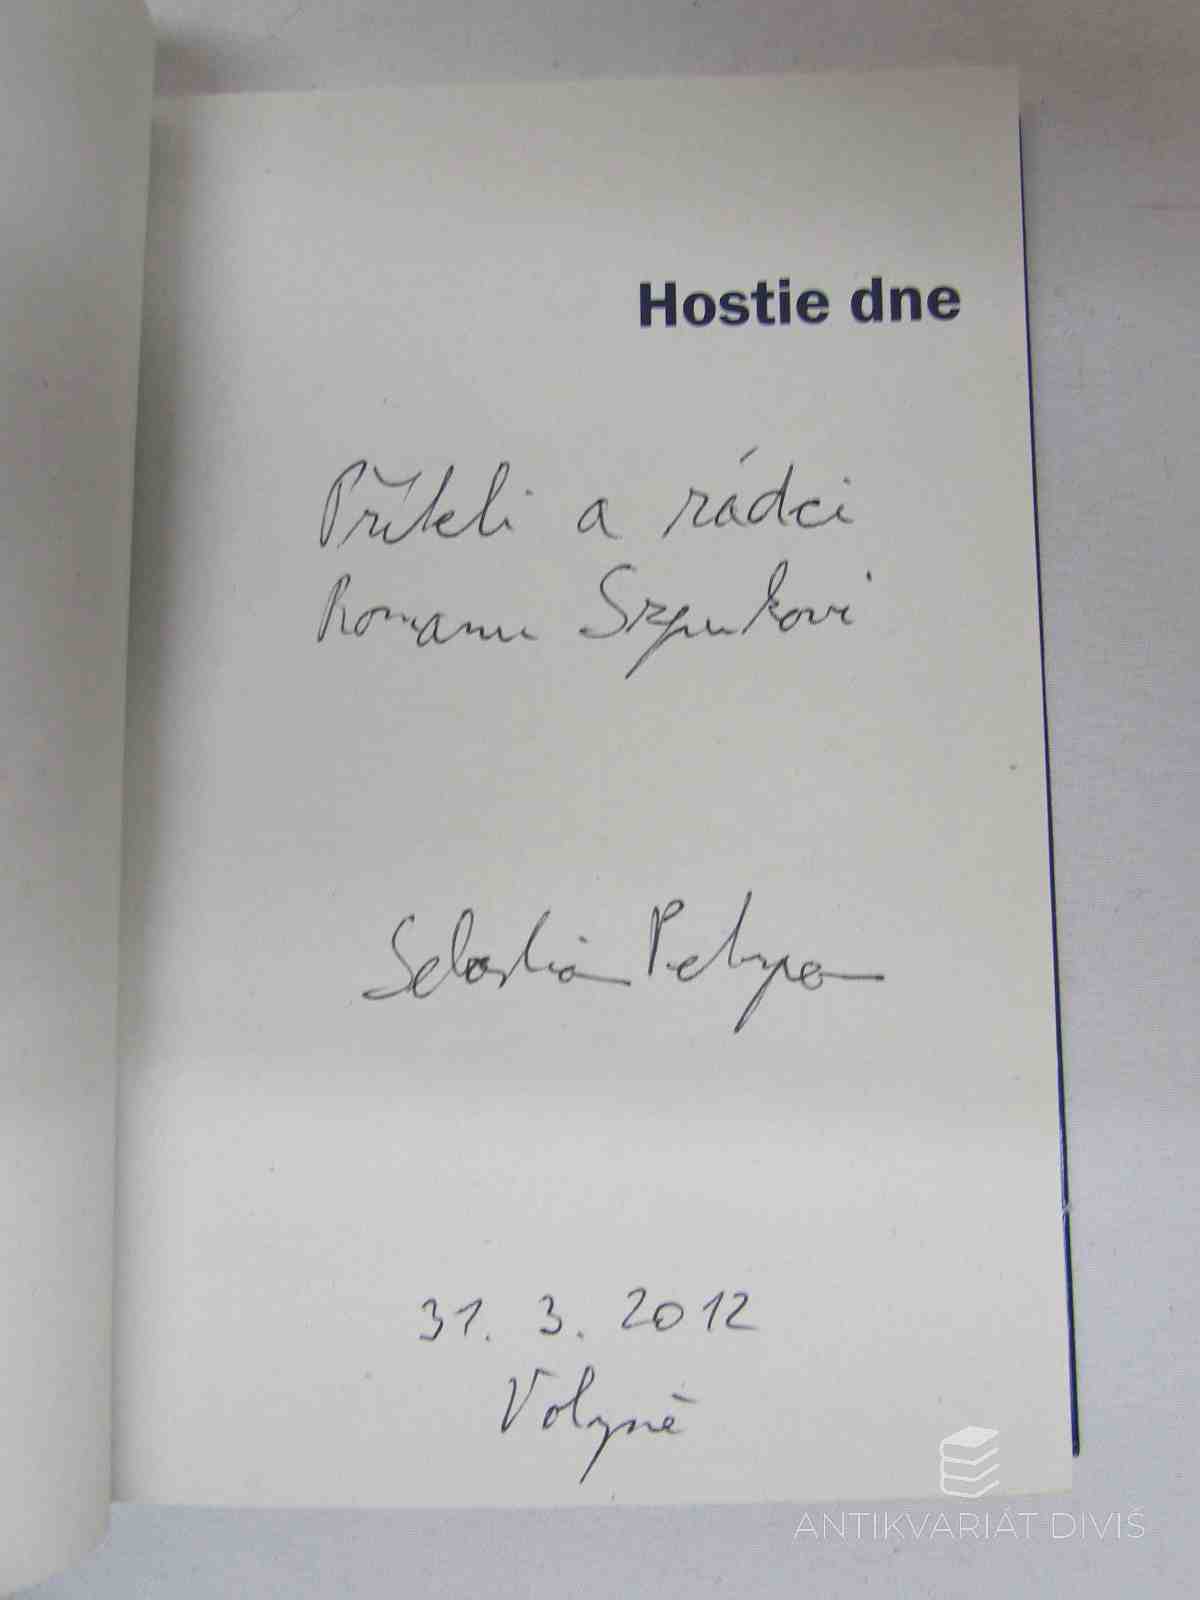 Hostie dne
Příteli a rádci
Romanu Szpukovi
Sebastian
31. 3. 2012
Volyně
ANTIKVARIÁT DIVIŠ